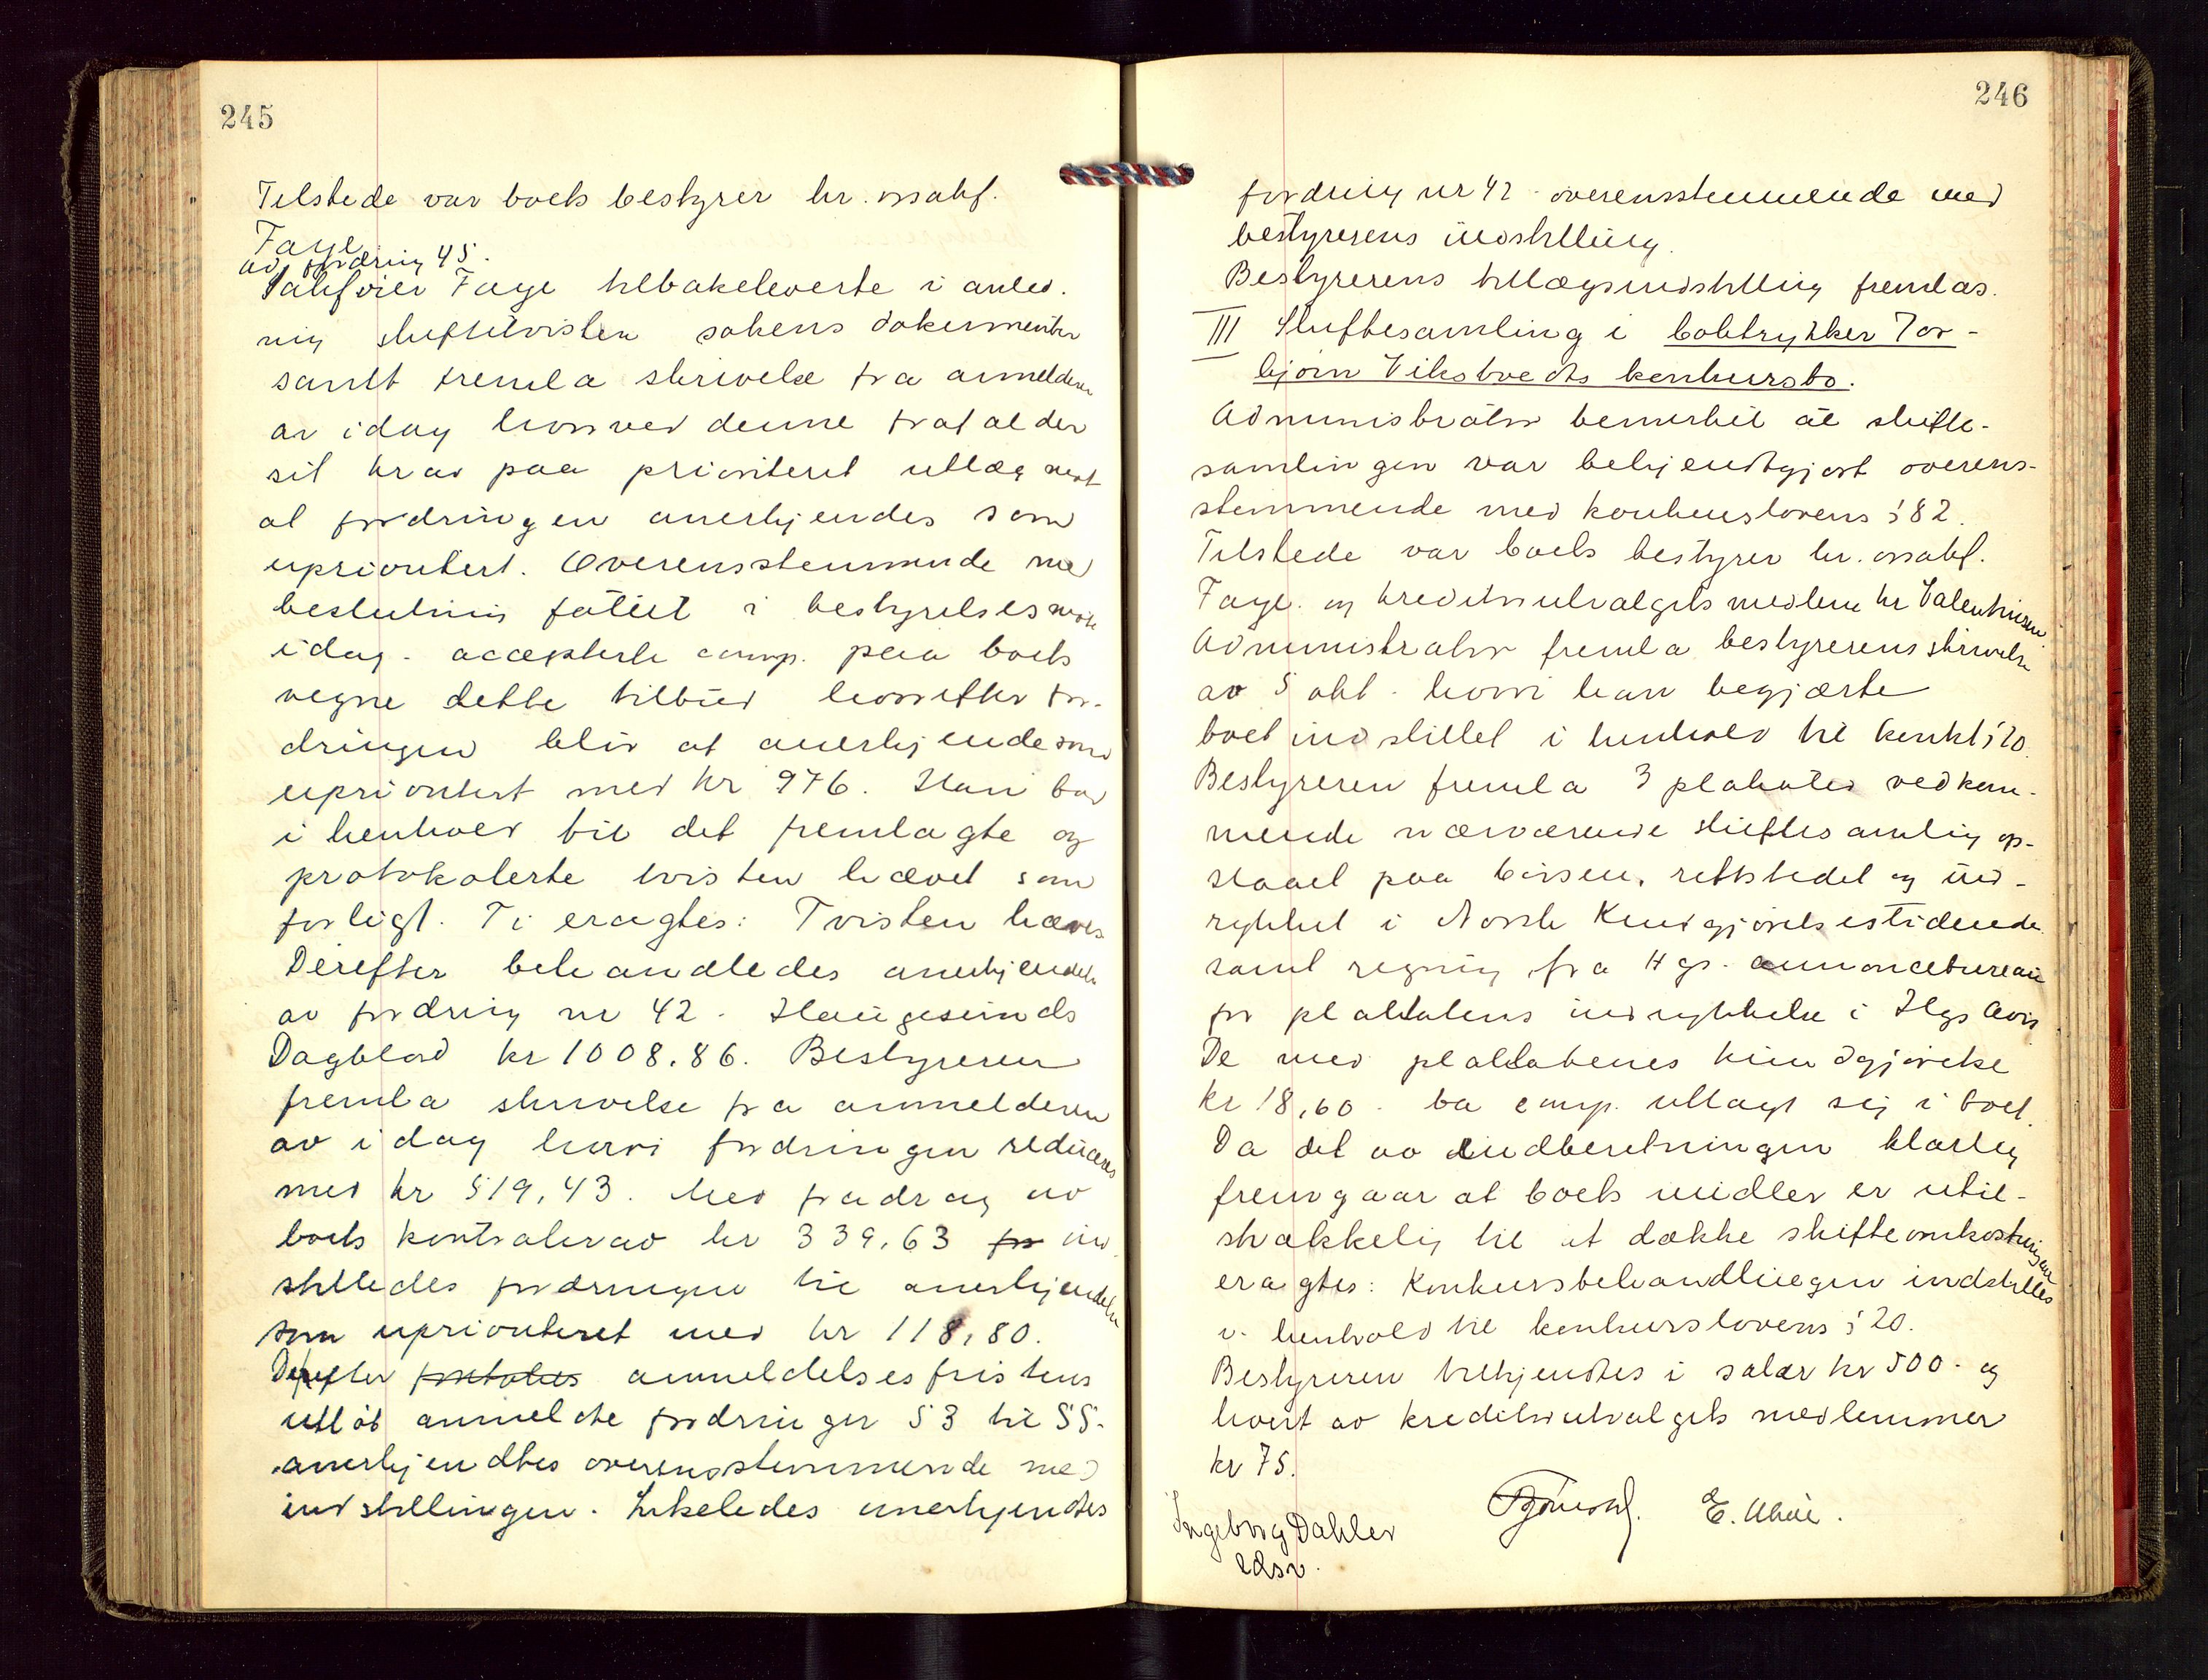 245
Tilstede var boets bestyrer hr. o.r.sakf.
Faye.
ad. fordring 45.
Sakfører Faye tilbakeleverte i anled.
ning skiftetvisten sakens dokumenter
samt fremla skrivelse fra anmelderen
av idag hvorved denne frafalder
sit krav paa prioritert utlæg mot
at fordringen anerkjendes som
uprioritert. Overensstemmende med
beslutning fattet i bestyrelsesmøte
idag - accepterte comp. paa boets
vegne dette tilbud hvorefter for-
dringen blir at anerkjende som
uprioritert med kr 976. Han bad
i henhold til det fremlagte og
protokolerte tvisten hævet som
forligt. Ti eragtes: Tvisten hæves
Derefter behandledes anerkjendelse
av fordring nr 42 - Haugesunds
Dagblad kr 1008.86. Bestyreren
fremla skrivelse fra anmelderen
av idag hvori fordringen reduceres
med kr 519,43. Med fradrag av
boets kontrakrav kr 339,63 for ind
stilledes fordringen til anerkjendelse
som uprioriteret med kr 118,80.
Derefter anmeldelsesfristens
utløb anmeldte fordringer 53 til 55.
anerkjendtes overensstemmende med
indstillingen. Likeledes anerkjendtes
246
fordring nr 42 - overensstemmende med
bestyrerens indstilling.
Bestyrerens tillægsindstilling fremlas.
III Skiftesamling i boktrykker Tor-
bjørn Vikstvedts konkursbo.
Administrator bemerket at skifte-
samlingen var bekjendtgjort overens-
stemmende med konkurslovens § 82.
Tilstede var boets bestyrer hr. o.r.sakf.
Faye. og kreditorutvalgets medlem hr Valentinsen
Administrator fremla bestyrerens skrivelse
av 5 okt. hvori han begjærte
boet indstillet i henhold til konkl § 20.
Bestyreren fremla 3 plakater vedkom-
mende nærværende skiftesamling op-
slaaet paa børsen, rettstedet og ind-
rykket i Norsk Kundgjørelsestidende
samt regning fra Hgs. annoncebureau
for plakatens indrykkelse i Hgs Avis
De med plakatenes kundgjørelse
kr 18,60 - ba comp. utlagt sig i boet.
Da det av indberetningen klarlig
fremgaar at boets midler er util-
strækkelig til at dække skifteomkostningene
eragtes: Konkursbehandlingen indstilles
i henhold til konkurslovens § 20.
Bestyreren tilkjendtes i salær kr 500 - og
hvert av kreditorutvalgets medlemmer
kr 75.
Ingeborg Dahler
edsv.